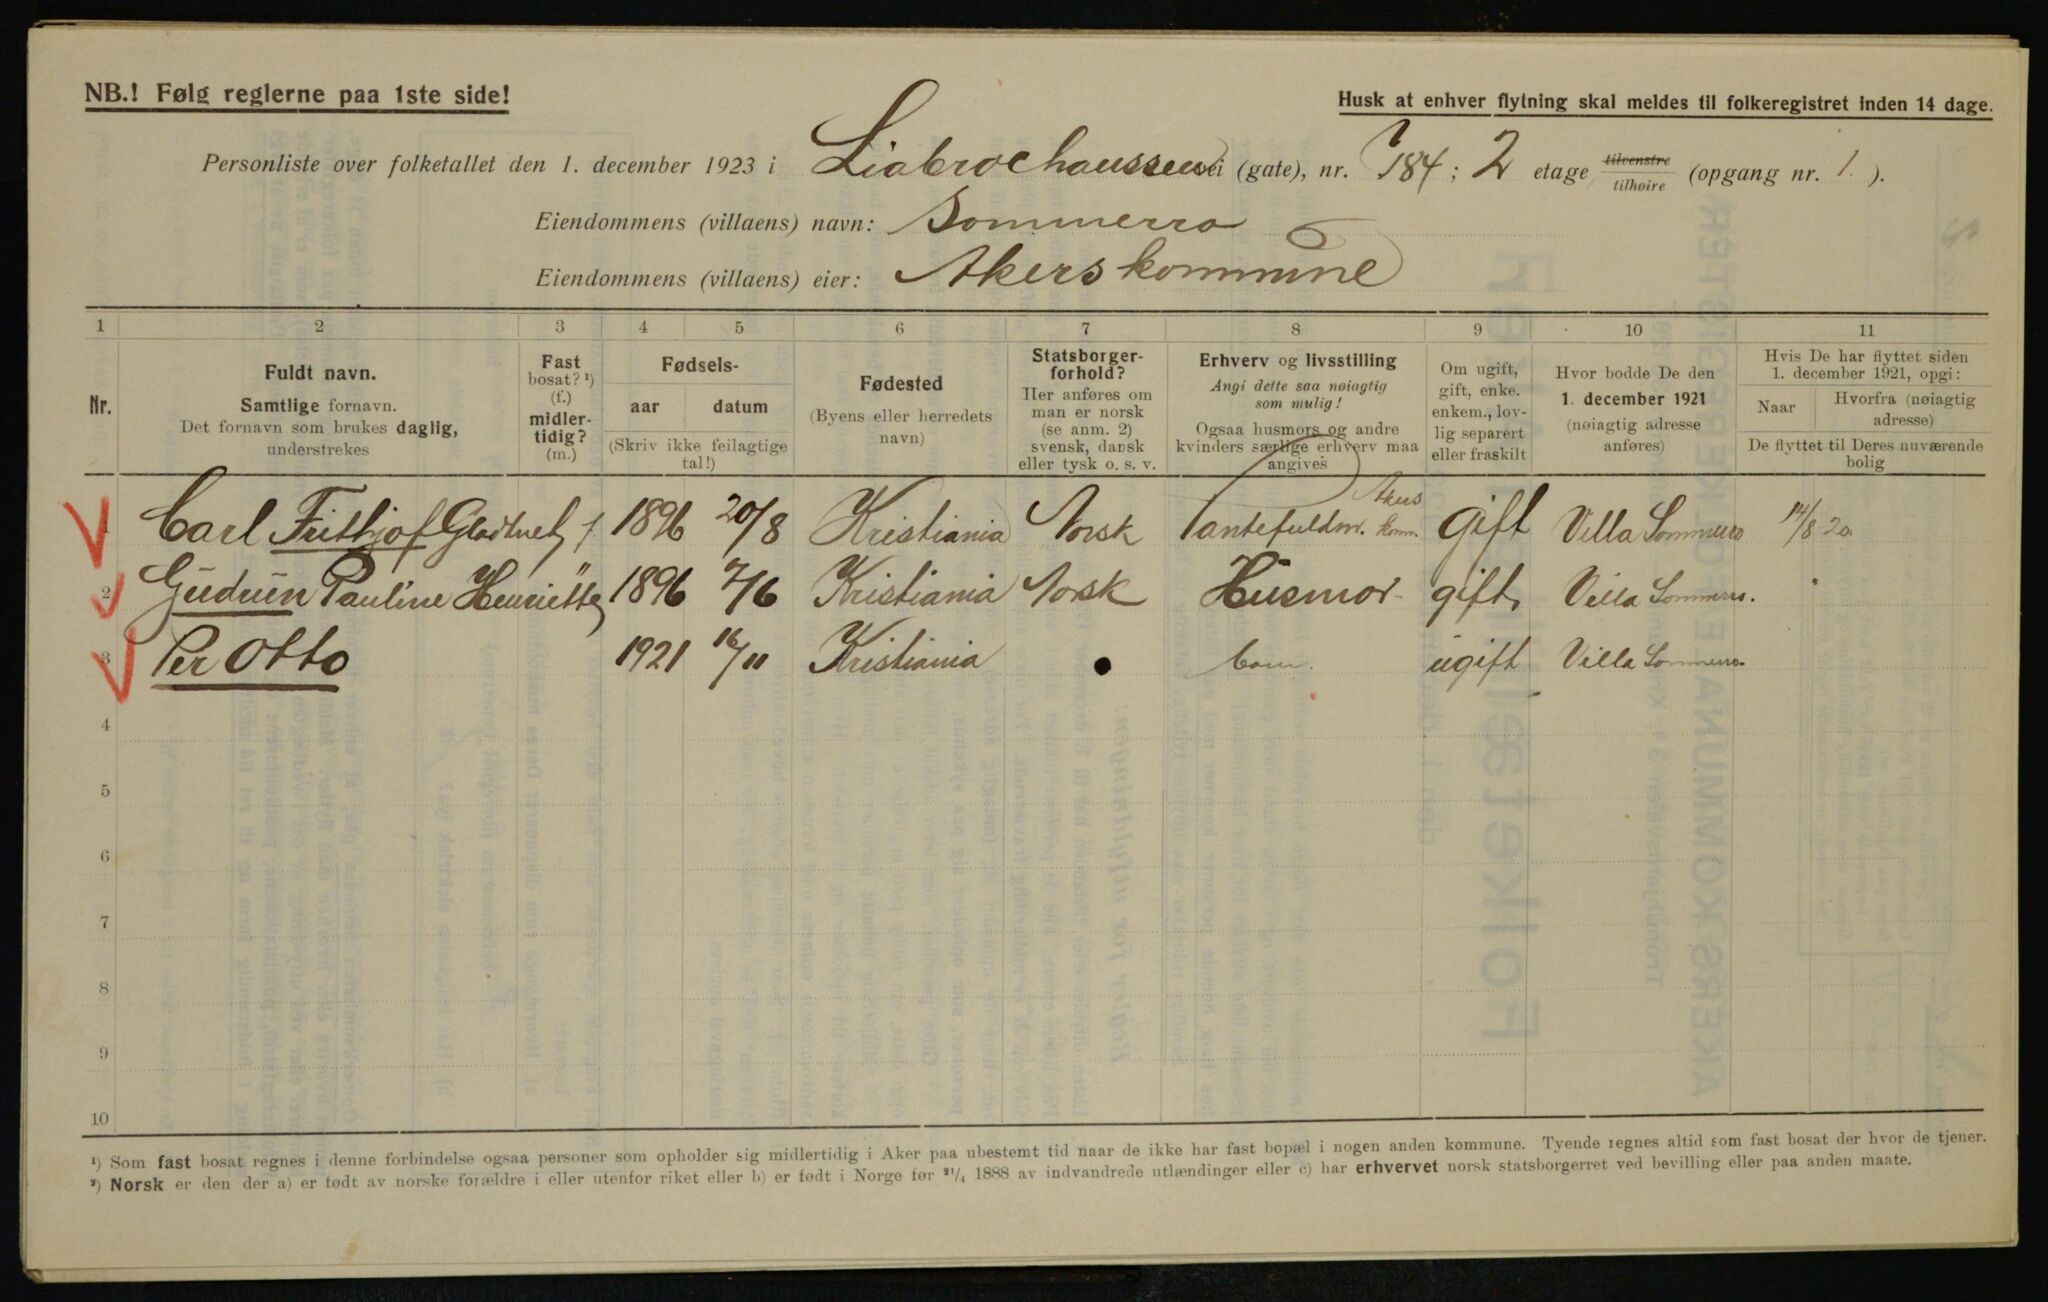 NB.! Følg reglerne paa 1ste side!
Husk at enhver flytning skal meldes til folkeregistret inden 14 dage.
Personliste over folketallet den 1. december 1923 i Liabrochausseen vei (gate), nr. 184; 2 etage tilvenstre tilhøire (opgang nr. 1.).
Eiendommens (villaens) navn: Sommerro
Eiendommens (villaens) eier: Akers kommune
1 2 3 4 5 6 7 8 9 10 11
Nr.
Fuldt navn.
Samtlige fornavn.
Det fornavn som brukes daglig,
understrekes
Fast
bosat? ¹)
(f.)
midler-
tidig?
(m.)
Fødsels-
aar datum
(Skriv ikke feilagtige
tal!)
Fødested
(Byens eller herredets
navn)
Statsborger-
forhold?
Her anføres om
man er norsk
(se anm. 2)
svensk, dansk
eller tysk o. s. v.
Erhverv og livsstilling
Angi dette saa nøiagtig
som mulig!
Ogsaa husmors og andre
kvinders særlige erhverv maa
angives
Om ugift,
gift, enke.
enkem., lov-
lig separert
eller fraskilt
Hvor bodde De den
1. december 1921
(nøiagtig adresse
anføres)
Hvis De har flyttet siden
1. december 1921, opgi:
Naar
Hvorfra (nøiagtig
adresse)
De flyttet til Deres nuværende
bolig
1 Carl Frithjof f 1896 20/8 Kristiania Norsk Pantefuldm. Akers komm. gift Villa Sommerro 14/8 20
2 Gudrun Pauline Henriette 1896 7/6 Kristiania Norsk Husmor gift Villa Sommerro.
3 Per Otto 1921 16/11 Kristiania barn. ugift Villa Sommerro
4
5
6
7
8
9
10
¹) Som fast bosat regnes i denne forbindelse ogsaa personer som opholder sig midlertidig i Aker paa ubestemt tid naar de ikke har fast bopæl i nogen anden kommune. Tyende regnes altid som fast bosat der hvor de tjener.
²) Norsk er den der a) er født av norske forældre i eller utenfor riket eller b) er født i Norge før 21/4 1888 av indvandrede utlændinger eller c) har erhvervet norsk statsborgerret ved bevilling eller paa anden maate.